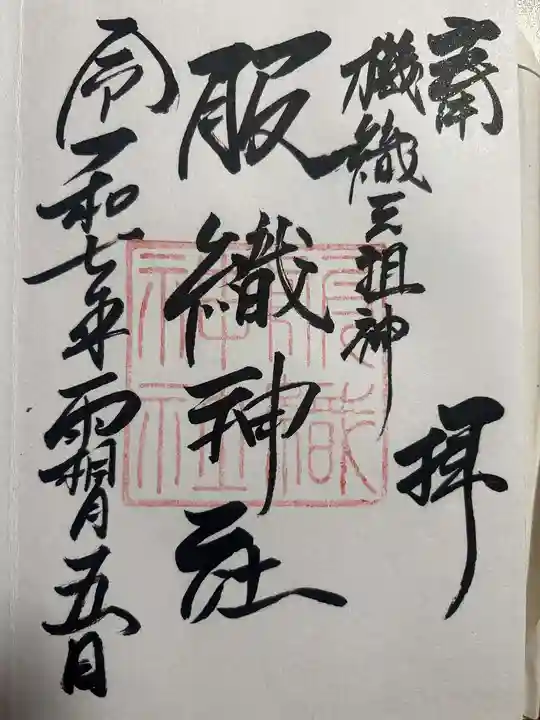 齋拝
機織祖神
服織神社
服織神社
令和七年霜月五日